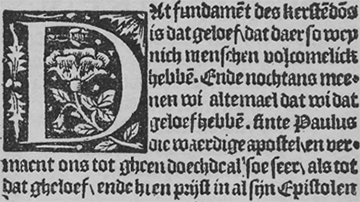 DAt fundamēt des kerstēdōs
is dat geloef/ dat daer so weynich
menschen volcomelick
hebbē. Ende nochtans meenen
wi altemael dat wi dat
geloef hebbē. sinte Paulus
die waerdige apostel/ en vermaent
ons tot gheen doechde al soe seer/ als tot
dat gheloef/ ende hi en prijst in al sijn Epistolen